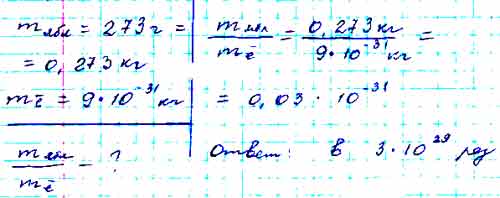 m ябл = 273 г =
= 0,273 кг
m ē = 9·10⁻³¹ кг
m ябл / m ē = ?
m ябл / m ē = 0,273 кг / 9·10⁻³¹ кг =
= 0,03 · 10⁻³¹
Ответ: в 3·10²⁹ раз